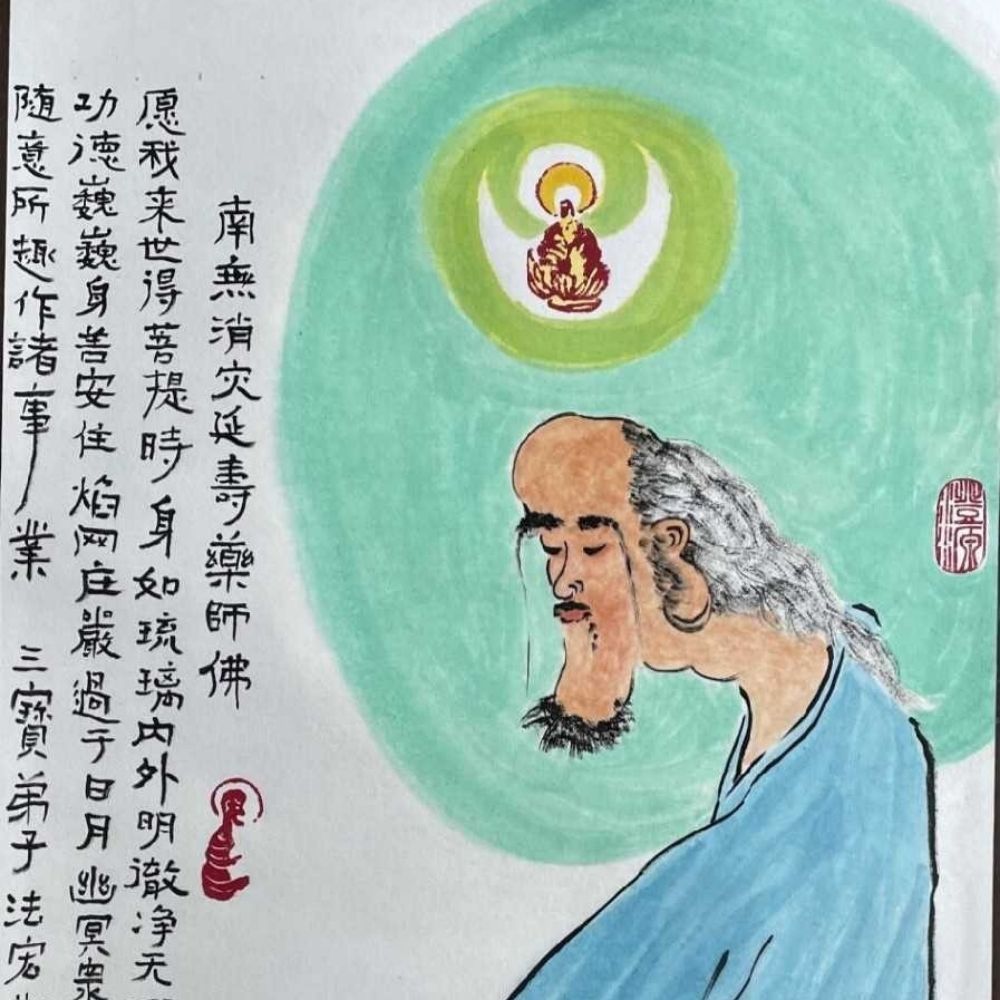 南無消灾延壽藥師佛
愿我来世得菩提時身如琉璃内外明徹净无
功德巍巍身苦安住焰网庄嚴過于日月幽冥衆
随意所趣作諸事業 三寶弟子法宏
澄源